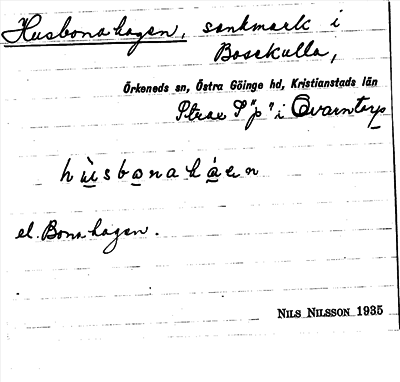 Husbonahagen, sankmark i
Bosekulla,
Örkeneds sn, Östra Göinge hd, Kristianstads län
Strax S "p" i Qvarntorp
hùsbonahàen
el. Bonahagen.
NILS NILSSON 1935